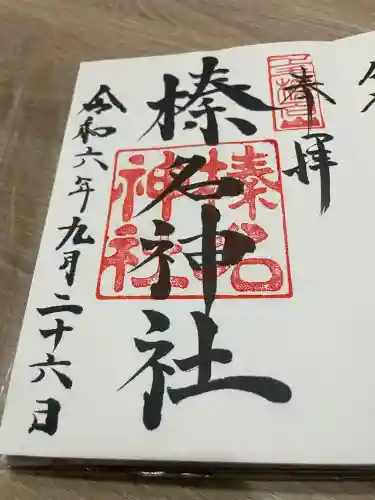 奉拝
榛名神社
榛名
神社
令和六年九月二十六日